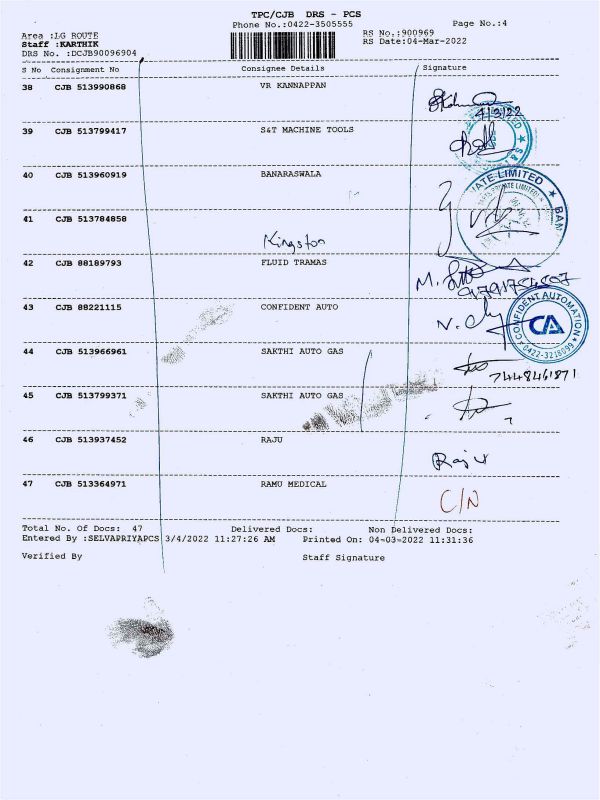 TPC/CJB DRS - PCS
Phone No.:0422-3505555
Page No.:4
Area :LG ROUTE
Staff :KARTHIK
DRS No. :DCJB90096904
RS No.:900969
RS Date:04-Mar-2022
S No Consignment No Consignee Details Signature
38 CJB 513990868 VR KANNAPPAN
4/3/22
39 CJB 513799417 S&T MACHINE TOOLS
40 CJB 513960919 BANARASWALA
ATE LIMITED ★ BAM
41 CJB 513784858
Kingston
42 CJB 88189793 FLUID TRAMAS
M.
43 CJB 88221115 CONFIDENT AUTO
CONFIDENT AUTOMATION
CA
0422-3218099
44 CJB 513966961 SAKTHI AUTO GAS
7448461871
45 CJB 513799371 SAKTHI AUTO GAS
46 CJB 513937452 RAJU
Raju
47 CJB 513364971 RAMU MEDICAL
C/N
Total No. Of Docs: 47 Delivered Docs: Non Delivered Docs:
Entered By :SELVAPRIYAPCS 3/4/2022 11:27:26 AM Printed On: 04-03-2022 11:31:36
Verified By Staff Signature